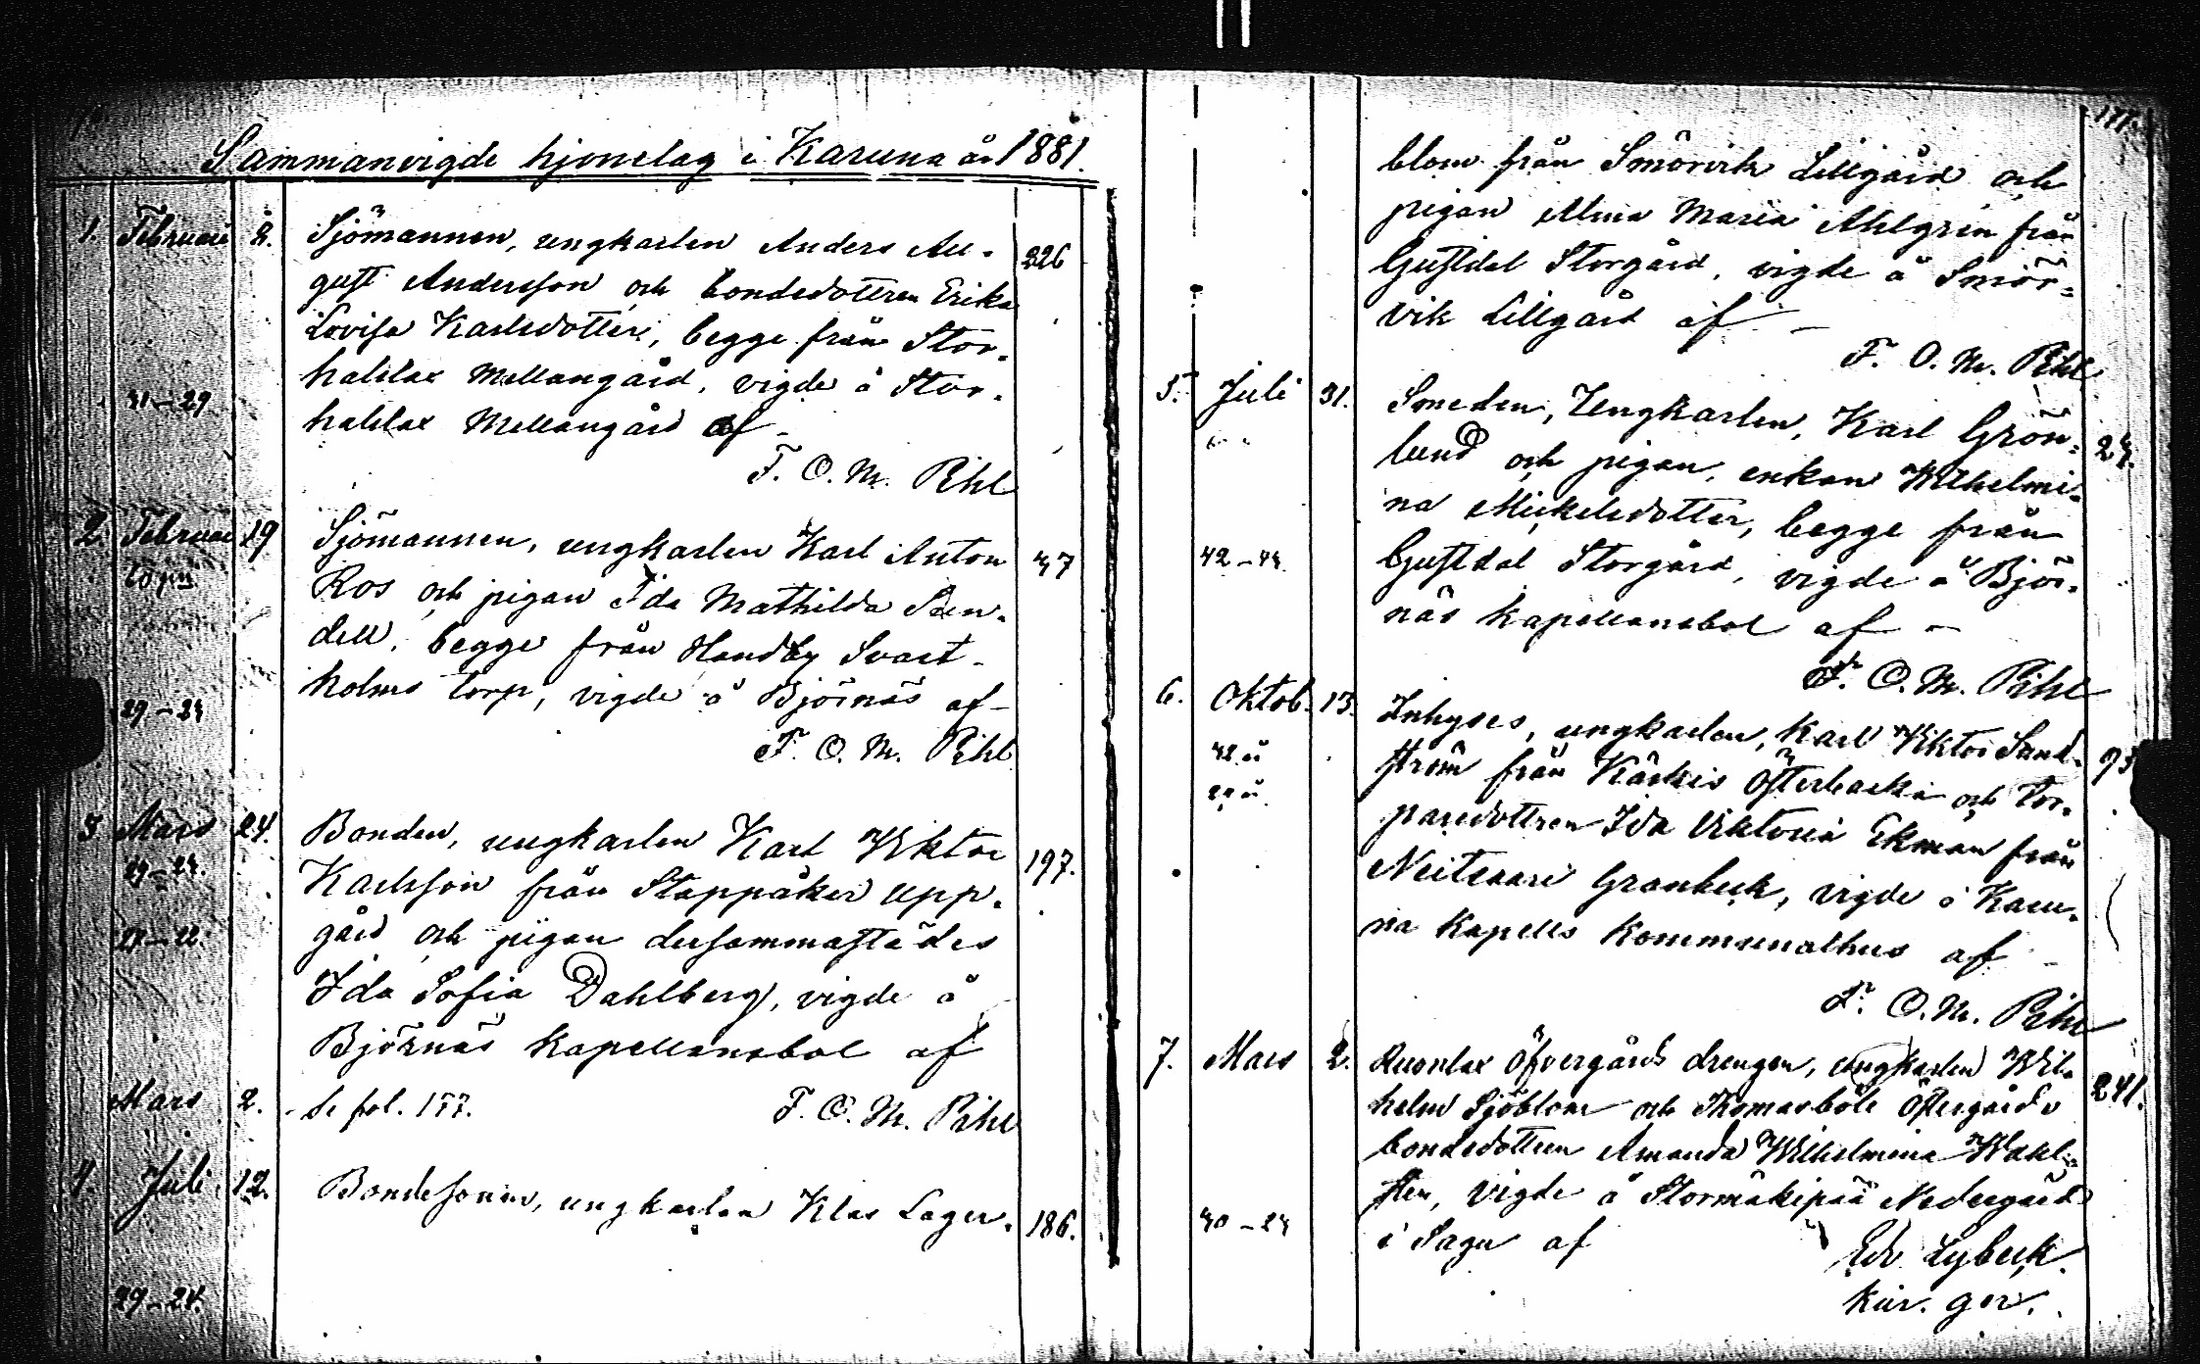 Sammanvigde hjonelag i Karuna år 1881.
1. Februari 2. Sjömannen, ungkarlen Anders Au- 226
gust Andersson och bondedottren Erika
Lovisa Karlsdotter, begge från Stor-
halslax Mellangård, vigde å Stor-
31-29
halslax Mellangård af -
F. O. M. Pihl
2. Februari 19 Sjömannen, ungkarlen Karl Anton 47
Ros och pigan Ida Mathilda San-
dell, begge från Handby Svart-
holms torp, vigde å Björnäs af -
29-24
F. O. M. Pihl
3 Mars 24. Bonden, ungkarlen Karl Viktor 197.
29-24.
Karlsson från Stappåker Upp-
27-22.
gård och pigan dersammastädes
Ida Sofia Dahlberg, vigde å
Björnäs Kapellansbol af
Mars 2. Se fol. 177. F. O. M. Pihl
4 Juli 12. Bondesonen, ungkarlen Klas Lager- 186.
29-24.
177.
blom från Smörvik Lillgård och
pigan Alma Maria Ahlgrén från
Gustdal Storgård, vigde å Smör-
vik Lillgård af -
F. O. M. Pihl
5. Juli 31. Smeden, Ungkarlen, Karl Grön- 24.
lund och pigan, enkan Wilhelmi-
na Mickelsdotter, begge från
42-44
Gustdal Storgård, vigde å Björ-
näs kapellansbol af -
F. O. M. Pihl
6. Oktob. 13. Inhyses, ungkarlen, Karl Viktor Sand- 93
42 år
ström från Kärkis Österbacka och tor-
29 år
paredottren Ida Viktoria Ekman från
Neitsaari Granbeck, vigde å Karu-
na Kapells Kommunalhus af -
F. O. M. Pihl
7. Mars 2. Ruonlax Öfvergårds drengen, ungkarlen Wil- 241.
helm Sjöblom och Thomasböle Östergårds
bondedottren Amanda Wilhelmina Wahl-
sten, vigde å Stormäkipää Nedergård
40-24
i Sagu af
Edv. Lybeck.
kur. ger.